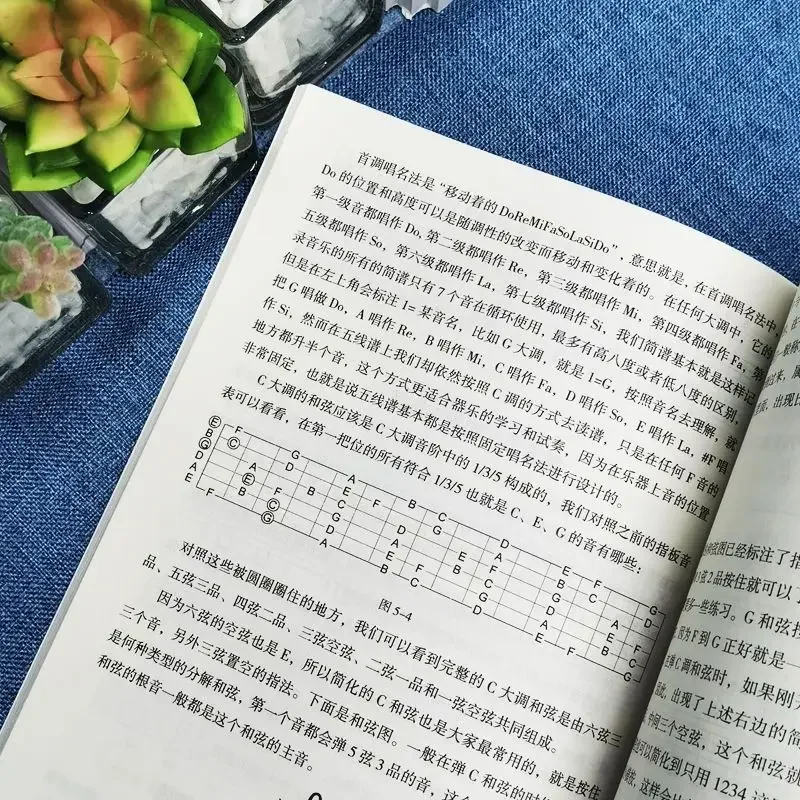 首调唱名法是“移动着的 DoReMiFaSoLaSiDo”，意思就是，在首调唱名法中，
Do 的位置和高度可以是随调性的改变而移动和变化着的。在任何大调中，它的
第一级音都唱作 Do, 第二级都唱作 Re，第三级都唱作 Mi，第四级都唱作 Fa，第
五级都唱作 So，第六级都唱作 La，第七级都唱作 Si，我们简谱基本就是这样记
录音乐的所有的简谱只有 7 个音在循环使用，最多有高八度或者低八度的区别，
但是在左上角会标注 1= 某音名，比如 G 大调，就是 1=G，按照音名去理解，就
把 G 唱做 Do，A 唱作 Re，B 唱作 Mi，C 唱作 Fa，D 唱作 So，E 唱作 La，#F 唱
作 Si，然而在五线谱上我们却依然按照 C 调的方式去读谱，只是在任何 F 音的
地方都升半个音，这个方式更适合器乐的学习和试奏，因为在乐器上音的位置
非常固定，也就是说五线谱基本都是按照固定唱名法进行设计的。
C 大调的和弦应该是 C 大调音阶中的 1/3/5 构成的，我们对照之前的指板音
表可以看看，在第一把位的所有符合 1/3/5 也就是 C、E、G 的音有哪些：
E F G A B C D E F G
B C D E F G A B C D
G A B C D E F G A
D E F G A B C D E F
A B C D E F G A B C
E F G A B C D E F G
图 5-4
对照这些被圆圈圈住的地方，我们可以看到完整的 C 大调和弦是由六弦三
品、五弦三品、四弦二品、三弦空弦、二弦一品和一弦空弦共同组成。
因为六弦的空弦也是 E，所以简化的 C 和弦也是大家最常用的，就是按住
三个音，另外三弦置空的指法。下面是和弦图。一般在弹 C 和弦的时候
是何种类型的分解和弦，第一个音都会弹 5 弦 3 品的音，这
和弦的根音一般都是这个和弦的主音。
弦图已经标注了指
弦 2 品按住就可以了
多一些练习。G 和弦按
因为 F 到 G 正好就是一
C 调和弦时，如果刚
出现了上述右边的简
中间三个空弦，这个和弦就
可以简化到只用 1234 这
这样会